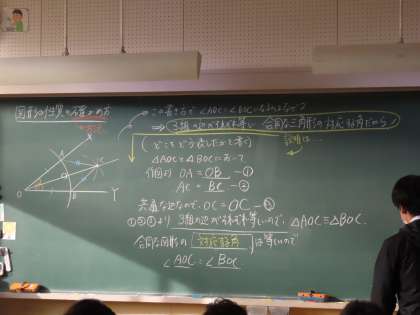 図形の性質の確かめ方
この書き方で∠AOC=∠BOCといえるのはなぜ?
⇒ 3組の辺がそれぞれ等しい 合同な三角形の対応する角だから!
証明は…
X
A
C
O
B
Y
△AOCと△BOCにおいて
仮定より OA=OB ―①
AC=BC ―②
共通な辺なので、OC=OC ―③
①②③より 3組の辺がそれぞれ等しいので、△AOC≡△BOC.
合同な図形の 対応する角 は等しいので
∠AOC=∠BOC